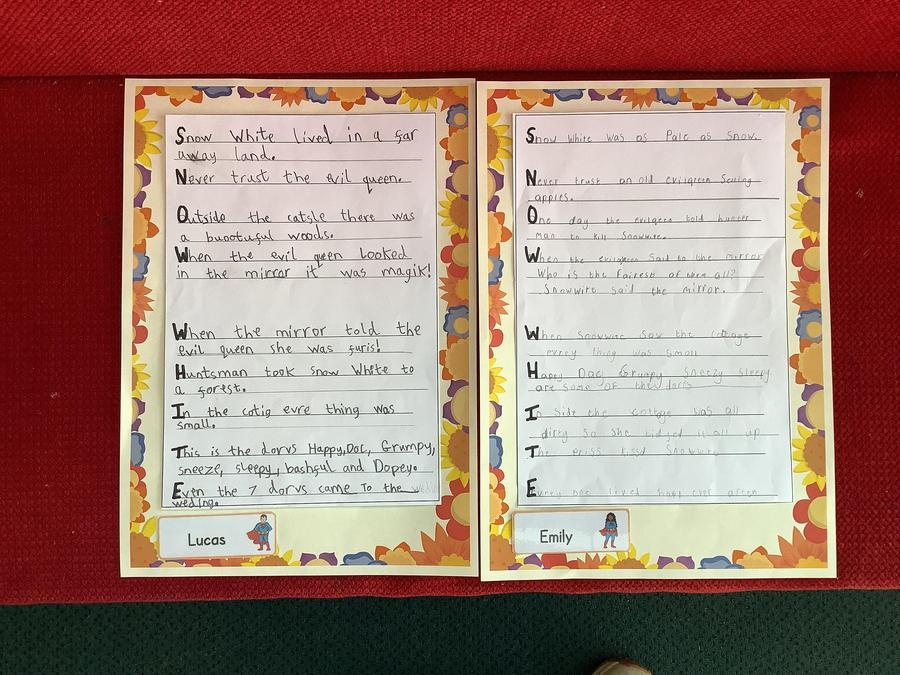 Snow White lived in a far
away land.
Never trust the evil queen.
Outside the catsle there was
a buootuful woods.
When the evil qeen looked
in the mirror it was magik!
When the mirror told the
evil queen she was furis!
Huntsman took snow White to
a forest.
In the cotig evre thing was
small.
This is the dorvs Happy, Doc, Grumpy,
sneeze, sleepy, bashful and Dopey.
Even the 7 dorvs came To the
weding.
Lucas
Snow White was as Pale as Snow.
Never trust an old evilqreen Seling
apples.
One day the evilqreen told hunter
man to kill Snowwite.
When the evilqreen Said to the mirror
Who is the fairest of them all?
Snowwite said the mirror.
When Snowwite Saw the cottage
evrey thing was Small
Happy Doc Grumpy Sneezy Sleepy
are some OF the
In Side the cottge was all
dirty So She it all up
The kissd Snowwite
Every one lived happ ever after
Emily